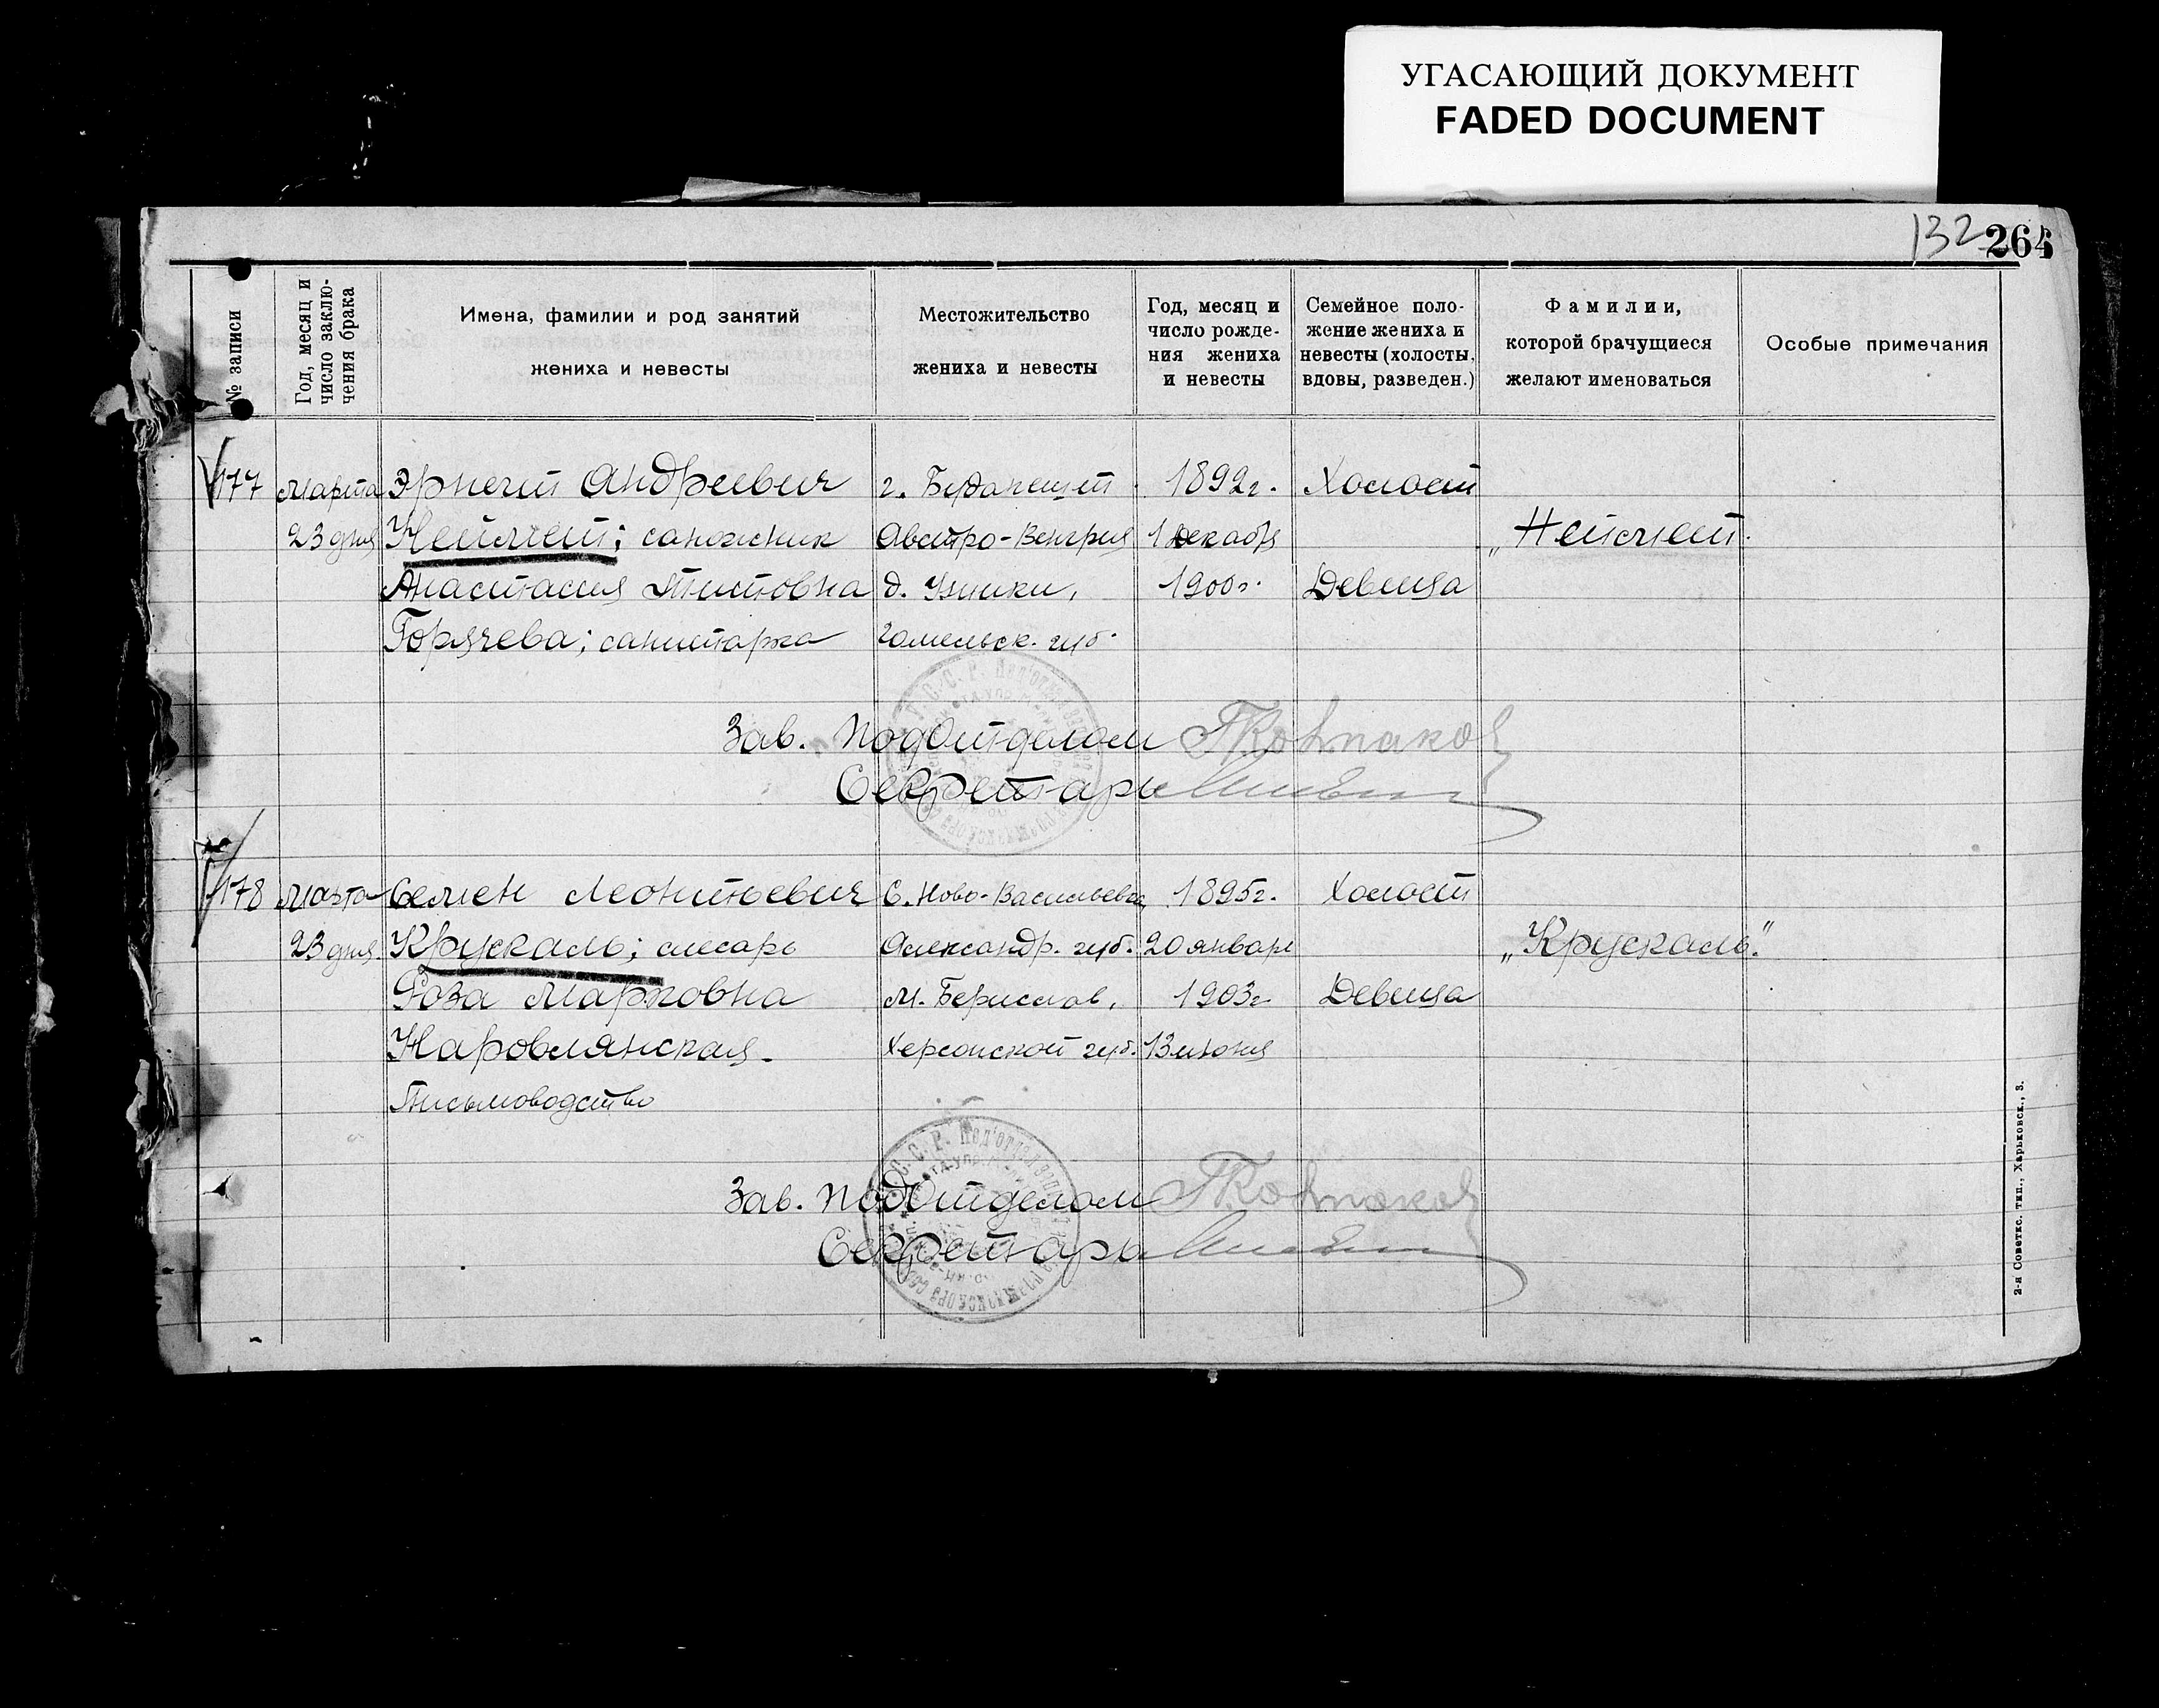 УГАСАЮЩИЙ ДОКУМЕНТ
FADED DOCUMENT
132 264
№ записи
Год, месяц и число заклю-
чения брака
Имена, фамилии и род занятий
жениха и невесты
Местожительство
жениха и невесты
Год, месяц и
число рожде-
ния жениха
и невесты
Семейное поло-
жение жениха и
невесты (холосты,
вдовы, разведен.)
Фамилии,
которой брачущиеся
желают именоваться
Особые примечания
177 Марта Эрнест Андреевич г. Будапешт 1892г. Холост
23 дня сапожник Австро-Венгрия 1 декабря
Анастасия Титовна д. 1900г. Девица
Горячева; санитарка Гомельск. губ.
Зав. Подотделом
Секретарь
178 Марта Семен Леонтьевич С. Ново-Васильевка 1895г. Холост
23 дня Крускаль; слесарь Александр. губ. 20 января „Крускаль."
Роза Марковна М. Берислав, 1903г. Девица
Наровлянская. Херсонской губ. 13 июня
Письмоводство
Зав. подотделом
Секретарь
2-я Советск. тип., Харьковск., 3.